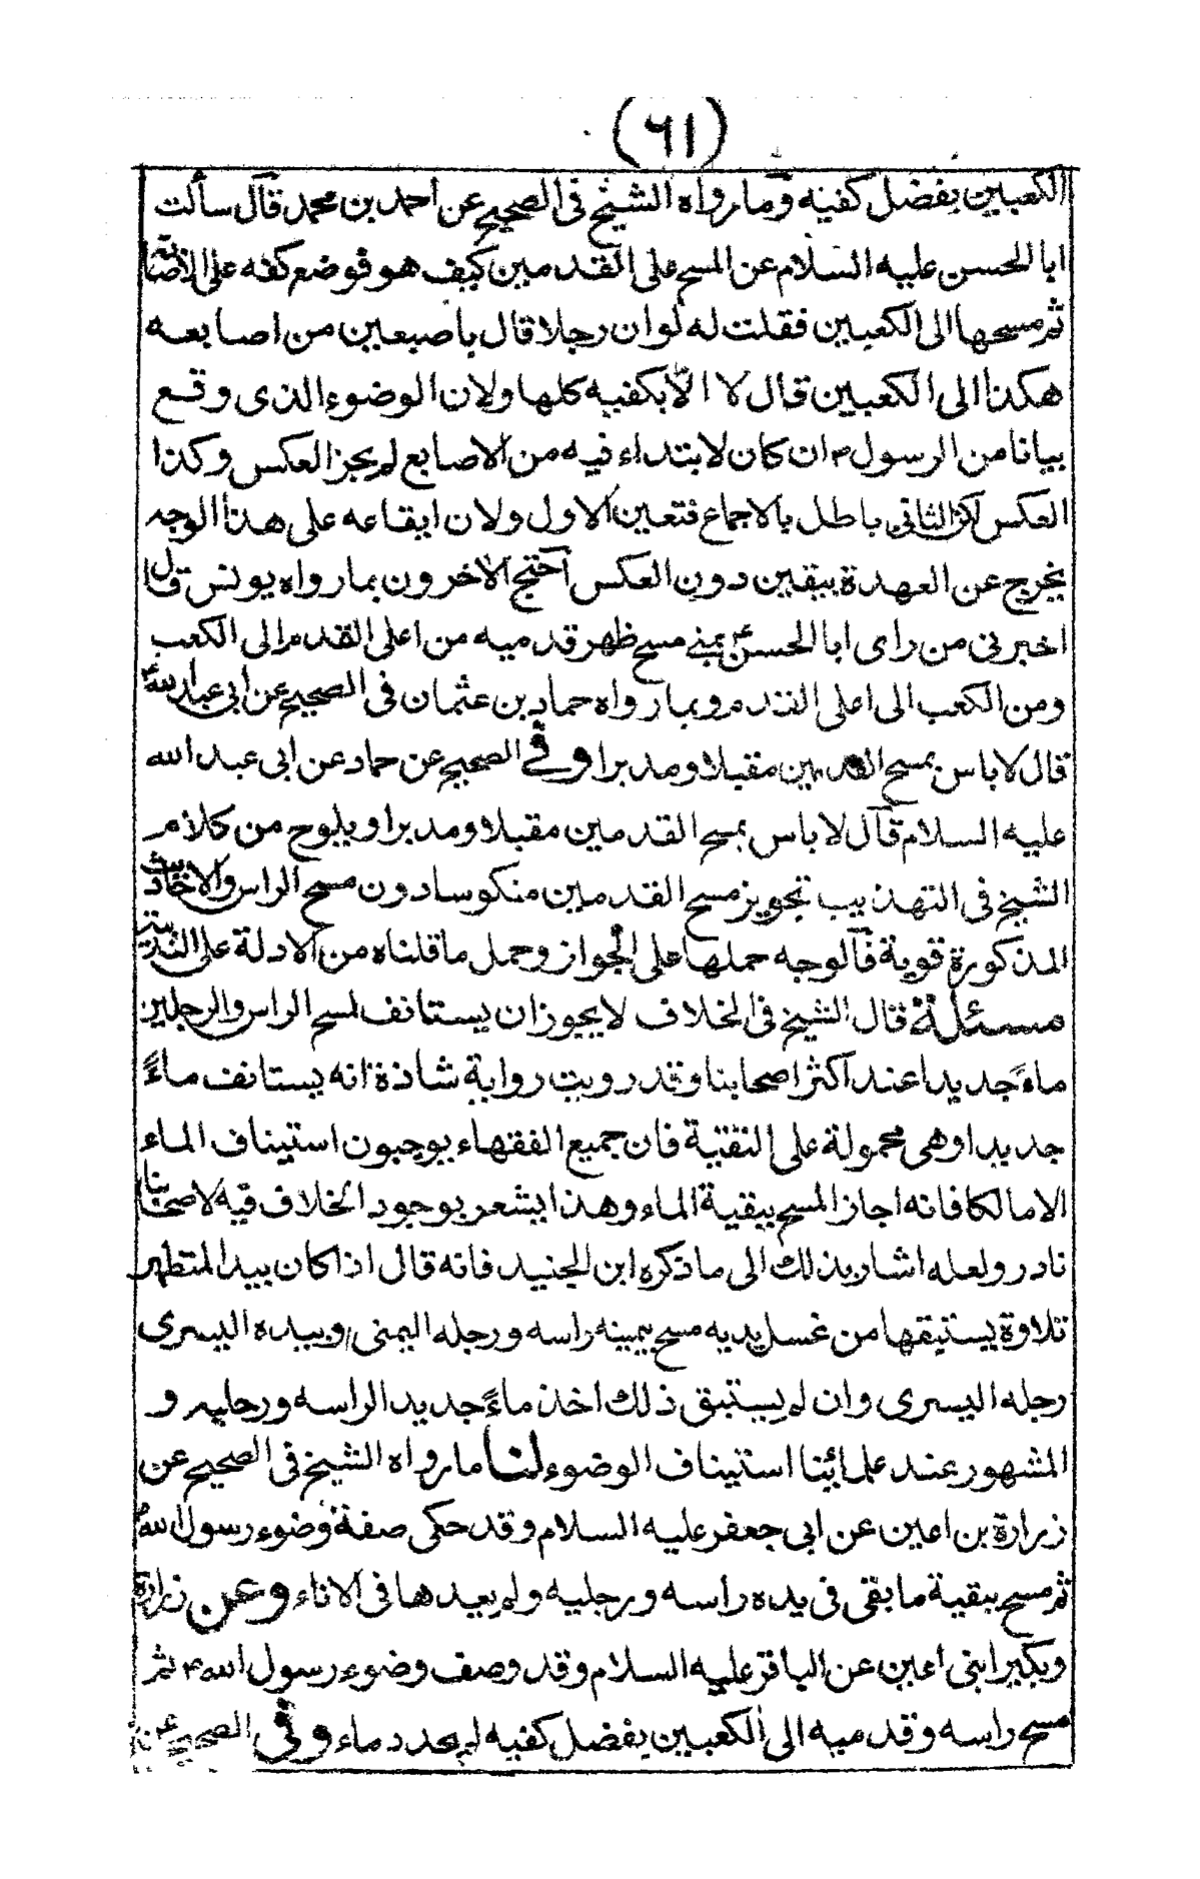 (٦١)
الكعبين بفضل كفيه وما رواه الشيخ فى الصحيح عن احمد بن محمد قال سألت
ابا الحسن عليه السلام عن المسح على القدمين كيف هو فوضع كفه على الاصابع
ثم مسحها الى الكعبين فقلت له لو ان رجلا قال باصبعين من اصابعه
هكذا الى الكعبين قال لا الا بكفيه كلها ولان الوضوء الذى وقع
بيانا من الرسول ص ان كان لابتداء فيه من الاصابع لم يجز العكس وكذا
العكس لكن الثانى باطل بالاجماع فتعين الاول ولان ايقاعه على هذا الوجه
يخرج عن العهدة بيقين دون العكس احتج الاخرون بما رواه يونس قال
اخبرنى من راى ابا الحسن ع بمنى مسح ظهر قدميه من اعلى القدم الى الكعب
ومن الكعب الى اعلى القدم وبما رواه حماد بن عثمان فى الصحيح عن ابى عبد الله ع
قال لا باس بمسح القدمين مقبلا ومدبرا وفى الصحيح عن حماد عن ابى عبد الله
عليه السلام قال لا باس بمسح القدمين مقبلا ومدبرا ويلوح من كلام
الشيخ فى التهذيب تجويز مسح القدمين منكوسا دون مسح الراس والاحاديث
المذكورة قوية فالوجه حملها على الجواز وحمل ما قلناه من الادلة على الندبية
مسئلة قال الشيخ فى الخلاف لا يجوز ان يستانف لمسح الراس والرجلين
ماءً جديدا عند اكثر اصحابنا وقد رويت رواية شاذة انه يستانف ماءً
جديدا وهى محمولة على التقية فان جميع الفقهاء يوجبون استيناف الماء
الا مالكا فانه اجاز المسح ببقية الماء وهذا يشعر بوجود الخلاف فيه لاصحابنا
نادر ولعله اشار بذلك الى ما ذكره ابن الجنيد فانه قال اذا كان بيد المتطهر
تلاوة يستبقها من غسل يديه مسح بيمينه راسه ورجله اليمنى وبيده اليسرى
رجله اليسرى وان لم يستبق ذلك اخذ ماءً جديدا لراسه ورجليه و
المشهور عند علمائنا استيناف الوضوء لنا ما رواه الشيخ فى الصحيح عن
زرارة بن اعين عن ابى جعفر عليه السلام وقد حكى صفة وضوء رسول الله ص
ثم مسح ببقية ما بقى فى يده راسه ورجليه ولم يعدها فى الاناء وعن زرارة
وبكير ابنى اعين عن الباقر عليه السلام وقد وصف وضوء رسول الله ص ثم
مسح راسه وقدميه الى الكعبين بفضل كفيه لم يجدد ماء وفى الصحيح عن